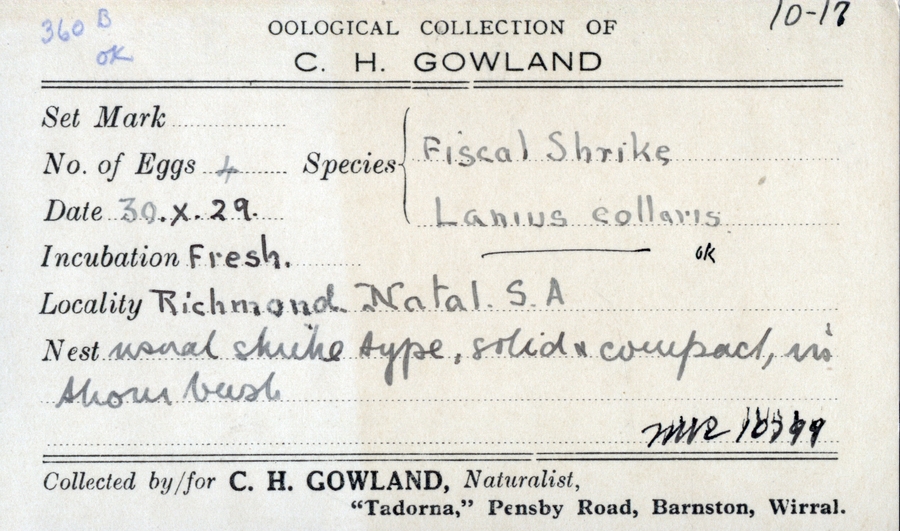 360 B
ok
10-17
OOLOGICAL COLLECTION OF
C. H. GOWLAND
Set Mark
No. of Eggs 4 Species Fiscal Shrike
Date 30.X.29. Lanius collaris
ok
Incubation Fresh.
Locality Richmond. Natal. S. A
Nest usual shrike type, solid & compact, in
thorn bush
Collected by/for C. H. GOWLAND, Naturalist,
"Tadorna," Pensby Road, Barnston, Wirral.